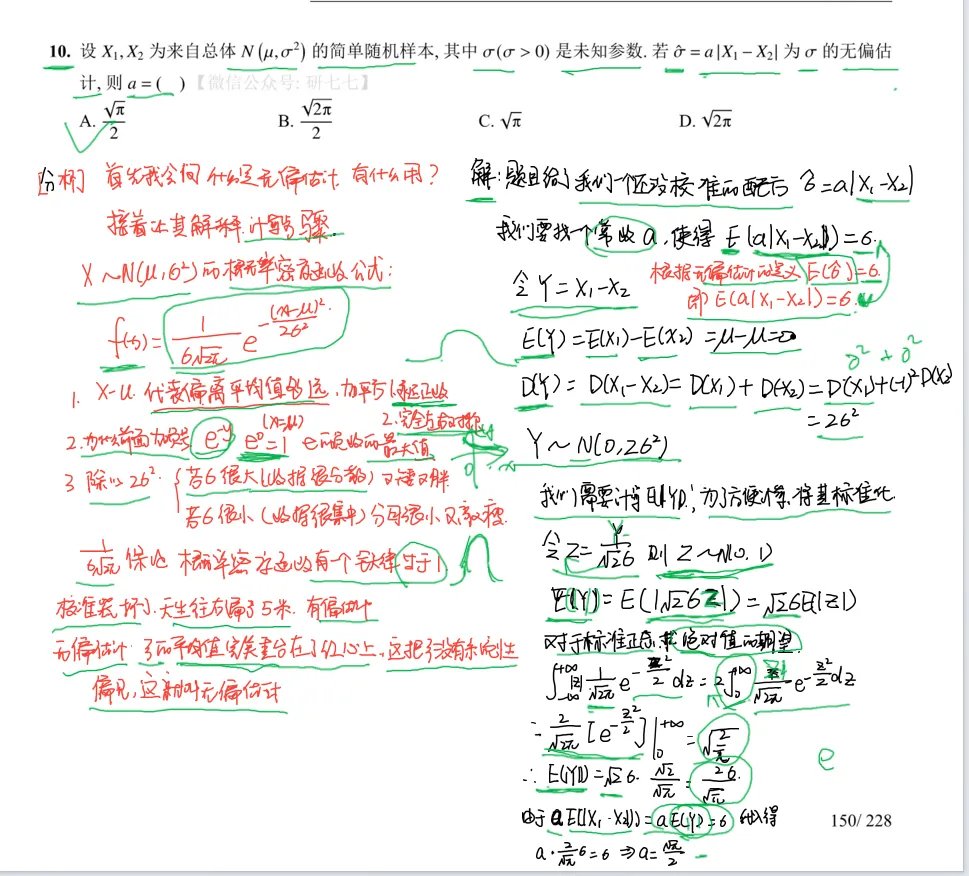 10. 设 X₁, X₂ 为来自总体 N (μ, σ²) 的简单随机样本, 其中 σ(σ > 0) 是未知参数. 若 σ̂ = a |X₁ − X₂| 为 σ 的无偏估
计, 则 a = ( ) 【微信公众号: 研七七】
A. √π/2 B. √2π/2 C. √π D. √2π
分析 首先我会问 什么是无偏估计 有什么用?
接着让其解释 计算步骤.
X ~ N(μ, σ²) 的概率密度函数公式:
f(x) = 1/(σ√2π) e^(-(x-μ)²/2σ²)
1. X-μ. 代表偏离平均值多远, 加平方
2. 为什么前面加负号 e^-y e⁰=1 (x=μ) e 的最大值 2. 完全左右对称
3 除以 2σ². { 若σ很大 (数据很分散) 又矮又胖
若σ很小 (数据很集中) 分母很小 又高又瘦.
1/(σ√2π) 保论 概率密度函数有一个铁律 等于1
校准器坏了, 天生往右偏了5米. 有偏估计
无偏估计 的平均值完美重合在了红心上, 这把没有系统性
偏见, 这就叫无偏估计
解: 题目给了我们一个还没校准的配方 σ̂ = a|X₁-X₂|
我们要找一个常数 a, 使得 E(a|X₁-X₂|) = σ.
根据无偏估计的定义 E(σ̂) = σ.
即 E(a|X₁-X₂|) = σ.
令 Y = X₁-X₂
E(Y) = E(X₁) - E(X₂) = μ-μ = 0
σ² + σ²
D(Y) = D(X₁-X₂) = D(X₁) + D(-X₂) = D(X₁) + (-1)² D(X₂)
= 2σ²
Y ~ N(0, 2σ²)
我们需要计算 E|Y|, 为了方便计算, 将其标准化.
令 Z = Y/(√2σ) 则 Z ~ N(0, 1)
E(|Y|) = E(|√2σZ|) = √2σE(|Z|)
对于标准正态, 求绝对值的期望
∫_{-∞}^{+∞} |z| 1/√2π e^(-z²/2) dz = 2∫_0^{+∞} z/√2π e^(-z²/2) dz
= 2/√2π [e^(-z²/2)] |_0^{+∞} = √(2/π)
∴ E(|Y|) = √2σ. √2/√π = 2σ/√π e
由于 a E(|X₁-X₂|) = a E(|Y|) = σ 代入得
a · 2/√π σ = σ ⇒ a = √π/2
150/ 228